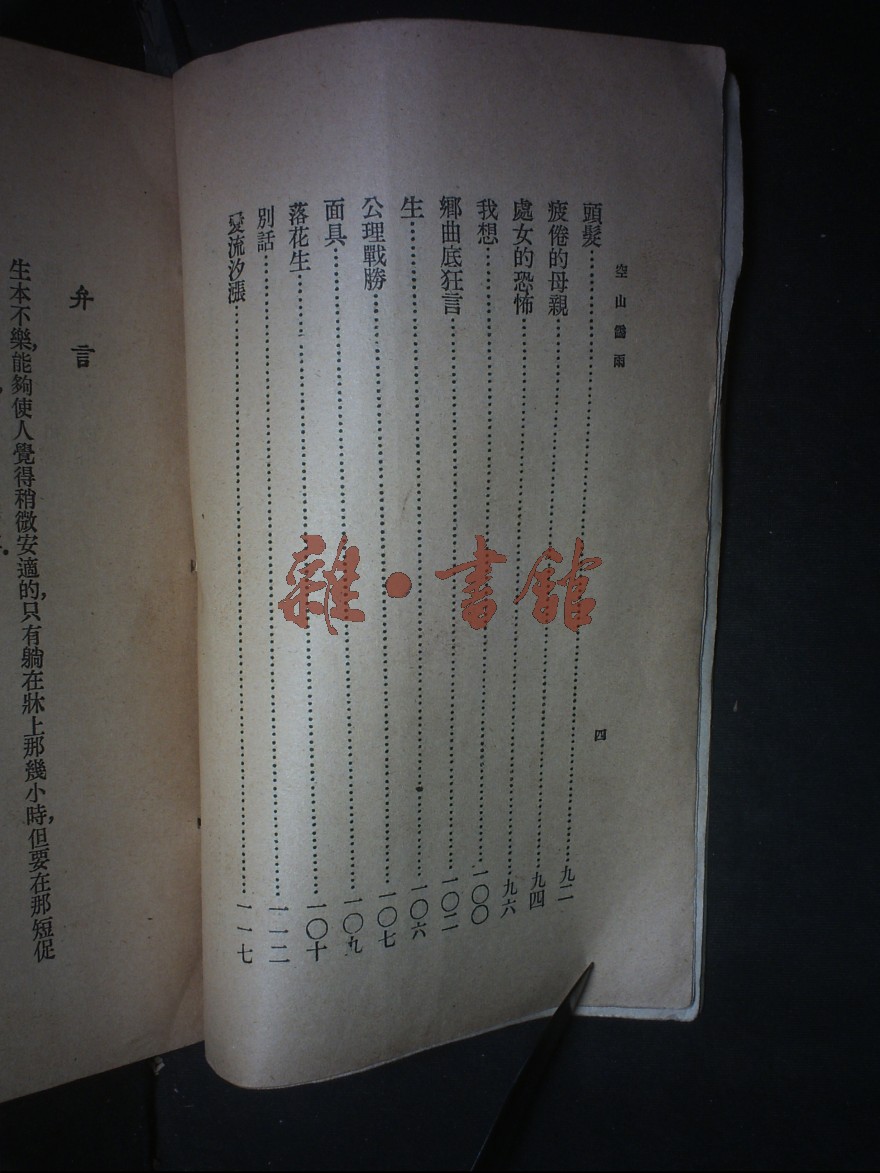 空山靈雨
四
頭髮…………九二
疲倦的母親…………九四
處女的恐怖…………九六
我想…………一〇〇
鄉曲底狂言…………一〇二
生…………一〇六
公理戰勝…………一〇七
面具…………一〇九
落花生…………一〇十
別話…………一一二
愛流汐漲…………一一七
弁言
生本不樂，能夠使人覺得稍微安適的，只有躺在牀上那幾小時，但要在那短促
雜·書館